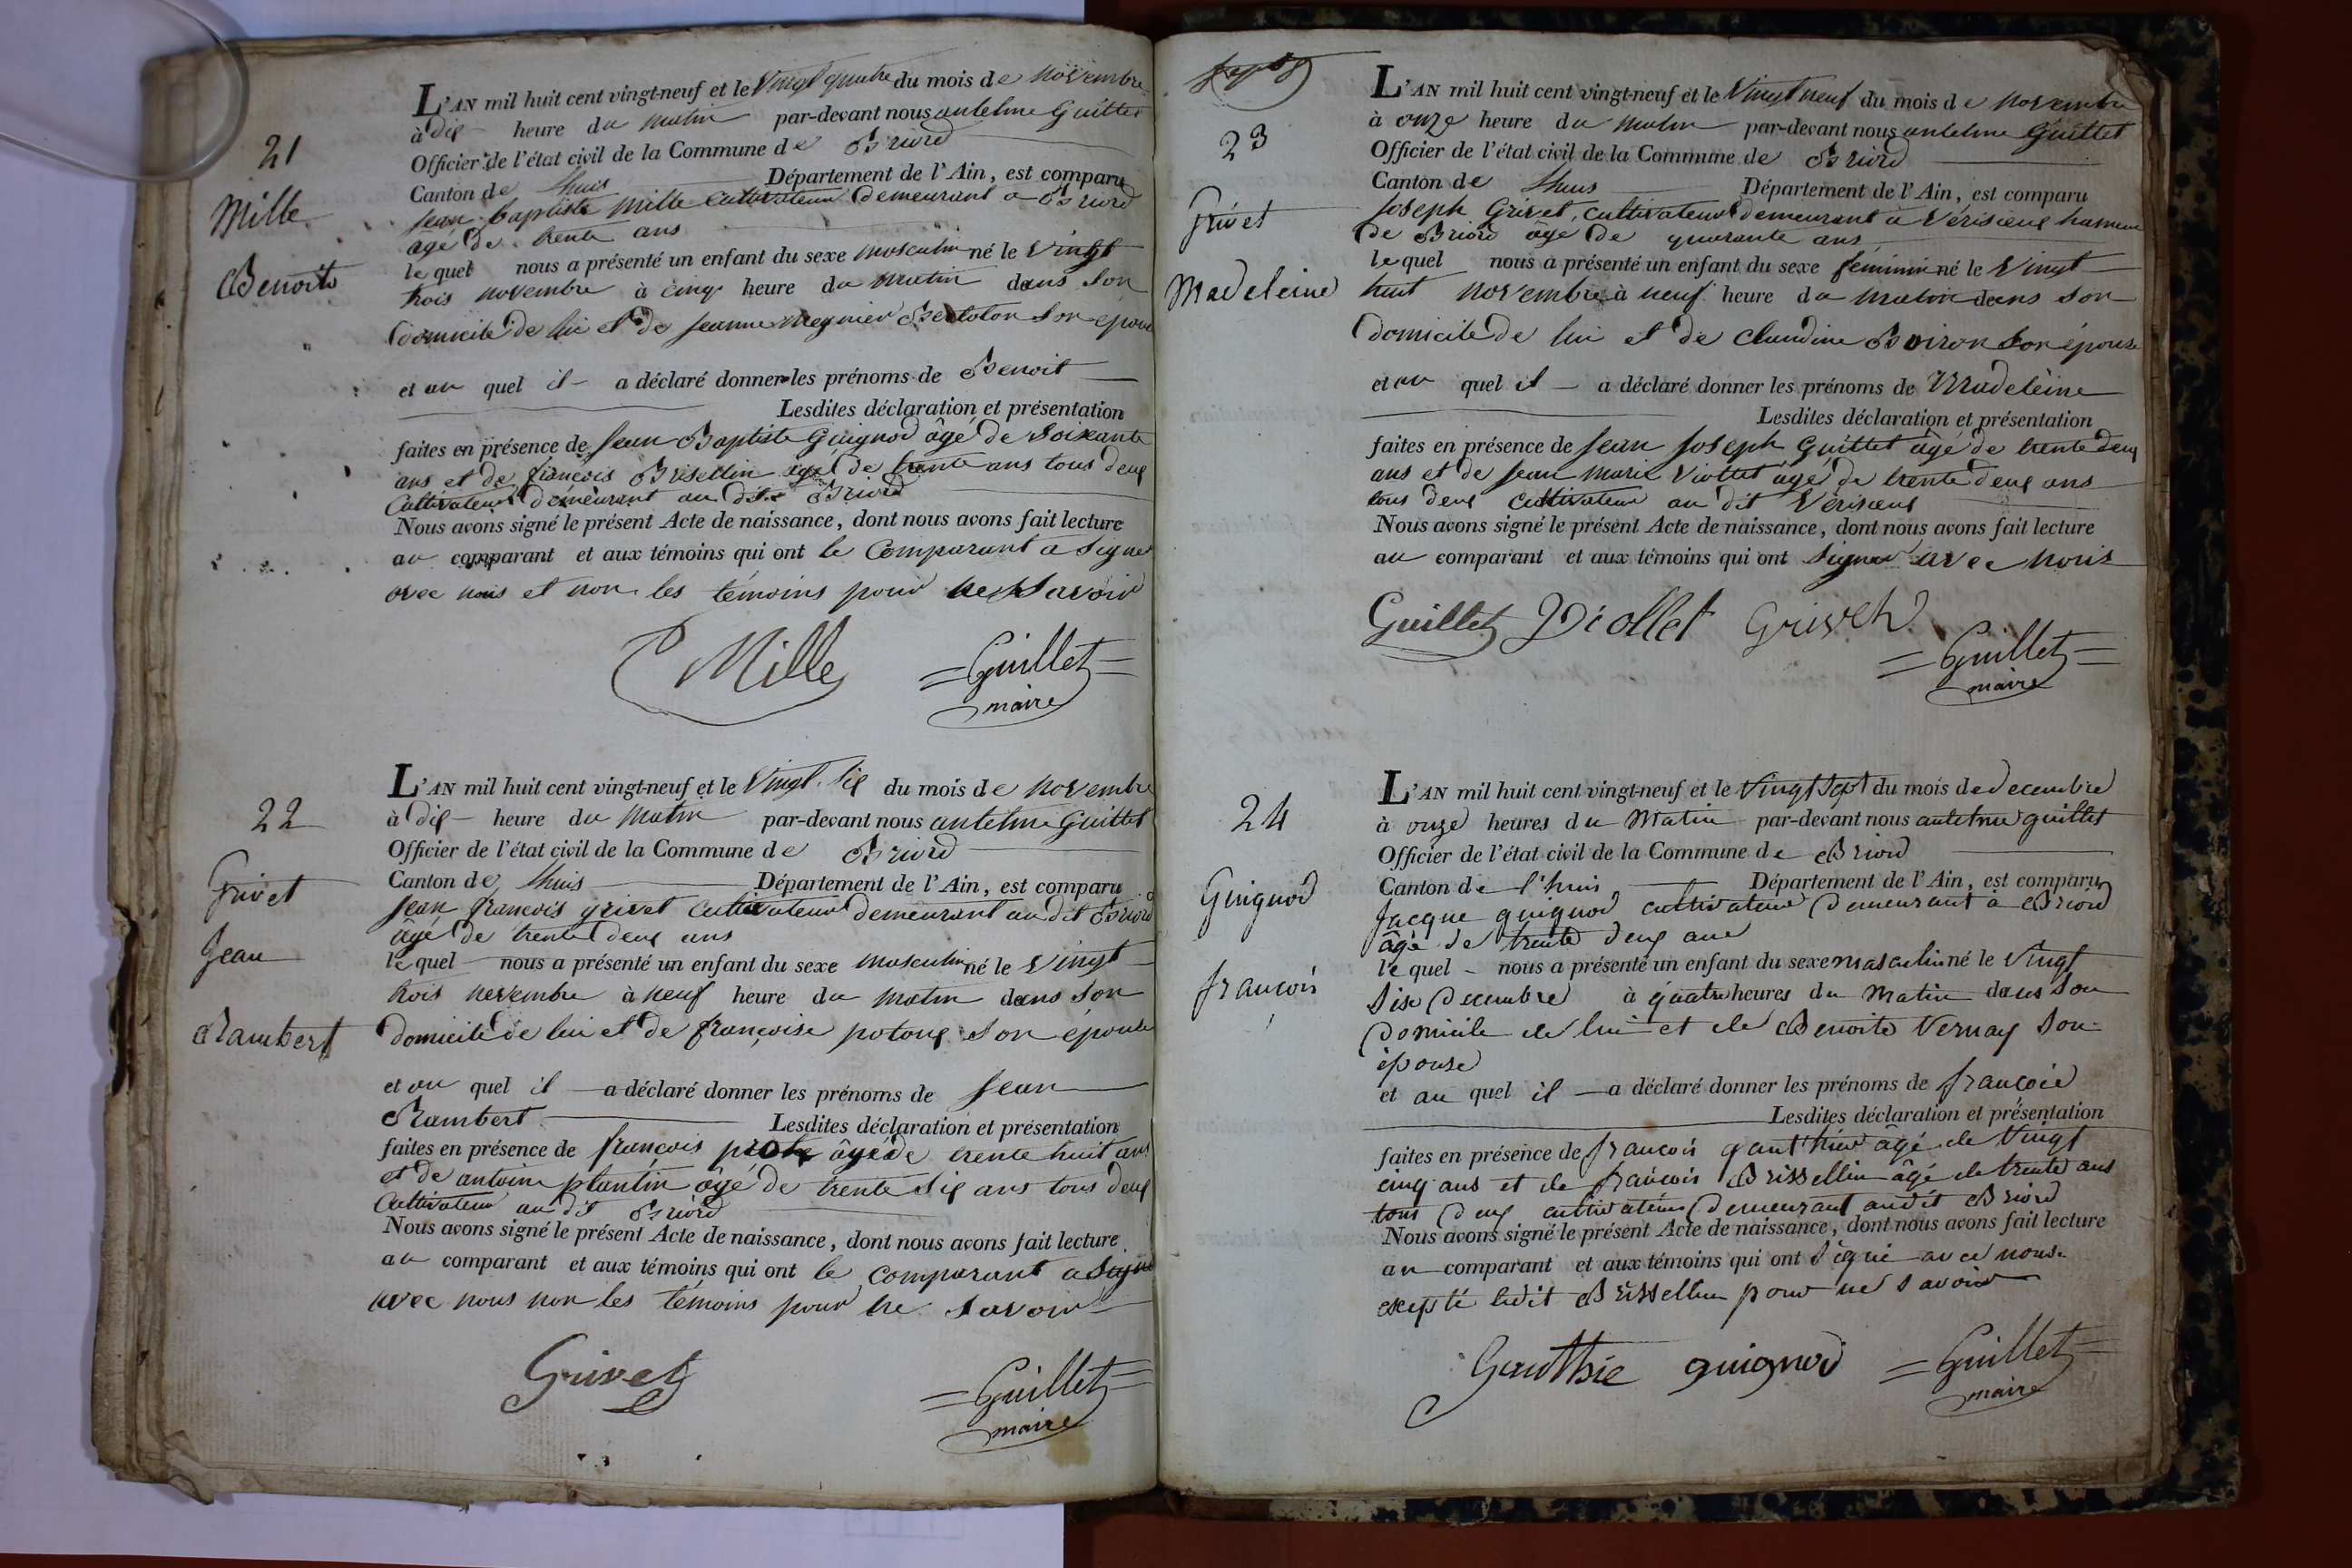 21
Mille
Benoit
L'AN mil huit cent vingt-neuf et le Vingt quatre du mois de novembre
à dix heure du matin par-devant nous antelme Guillet
Officier de l'état civil de la Commune de Briord
Canton de Lhuis Département de l'Ain, est comparu
Jean baptiste Mille cultivateur demeurant a Briord
âgé de trente ans
lequel nous a présenté un enfant du sexe masculin né le vingt
trois novembre à cinq heure du matin dans son
domicile de lui et de jeanne Bertolon son épouse
et au quel il a déclaré donner les prénoms de Benoit
Lesdites déclaration et présentation
faites en présence de Jean Baptiste Guignod âgé de soixante
ans et de françois Brisellin âgé de trente ans tous deux
Cultivateur demeurant au dit Briord
Nous avons signé le présent Acte de naissance, dont nous avons fait lecture
au comparant et aux témoins qui ont le Comparant a signé
avec nous et non les témoins pour ne savoir
Mille =Guillet=
maire
22
Grivet
Jean
Rambert
L'AN mil huit cent vingt-neuf et le Vingt six du mois de novembre
à dix heure du Matin par-devant nous antelme Guillet
Officier de l'état civil de la Commune de Briord
Canton de Lhuis Département de l'Ain, est comparu
Jean françois grivet cultivateur demeurant au dit Briord
âgé de trente deux ans
lequel nous a présenté un enfant du sexe masculin né le vingt
trois novembre à neuf heure du matin dans son
domicile de lui et de françoise son épouse
et au quel il a déclaré donner les prénoms de Jean
Rambert Lesdites déclaration et présentation
faites en présence de françois âgé de trente huit ans
et de antoine plantin âgé de trente six ans tous deux
Cultivateur au dit Briord
Nous avons signé le présent Acte de naissance, dont nous avons fait lecture
au comparant et aux témoins qui ont le comparant a signé
avec nous non les témoins pour ne savoir
Grivet =Guillet=
maire
23
Grivet
Madeleine
L'AN mil huit cent vingt-neuf et le Vingt neuf du mois de novembre
à onze heure du matin par-devant nous antelme Guillet
Officier de l'état civil de la Commune de Briord
Canton de Lhuis Département de l'Ain, est comparu
Joseph Grivet, cultivateur demeurant à Vérisieux hameau
de Briord âgé de quarante ans
lequel nous a présenté un enfant du sexe féminin né le Vingt
huit novembre à neuf heure du matin dans son
domicile de lui et de Claudine Boiron son épouse
et au quel il a déclaré donner les prénoms de Madeleine
Lesdites déclaration et présentation
faites en présence de Jean Joseph Guillet âgé de trente deux
ans et de Jean Marie Viollet âgé de trente deux ans
tous deux Cultivateur au dit Vérisieux
Nous avons signé le présent Acte de naissance, dont nous avons fait lecture
au comparant et aux témoins qui ont signer avec nous
Guillet Viollet Grivet
=Guillet=
maire
24
Guignod
françois
L'AN mil huit cent vingt-neuf et le Vingt Sept du mois de decembre
à onze heures du Matin par-devant nous antelme guillet
Officier de l'état civil de la Commune de Briord
Canton de l'huis Département de l'Ain, est comparu
Jacque guignod cultivateur demeurant à Briord
âgé de trente deux ans
lequel nous a présenté un enfant du sexe masculin né le Vingt
Six Decembre à quatre heures du Matin dans son
Domicile de lui et de Benoite Vernay Son
épouse
et au quel il a déclaré donner les prénoms de françois
Lesdites déclaration et présentation
faites en présence de françois gautthier âgé de Vingt
cinq ans et de françois Brissellin âgé de trente ans
tous deux cultivateurs demeurant audit Briord
Nous avons signé le présent Acte de naissance, dont nous avons fait lecture
au comparant et aux témoins qui ont signé avec nous
excepté ledit Brissellin pour ne savoir
Gautthie guignod =Guillet=
maire